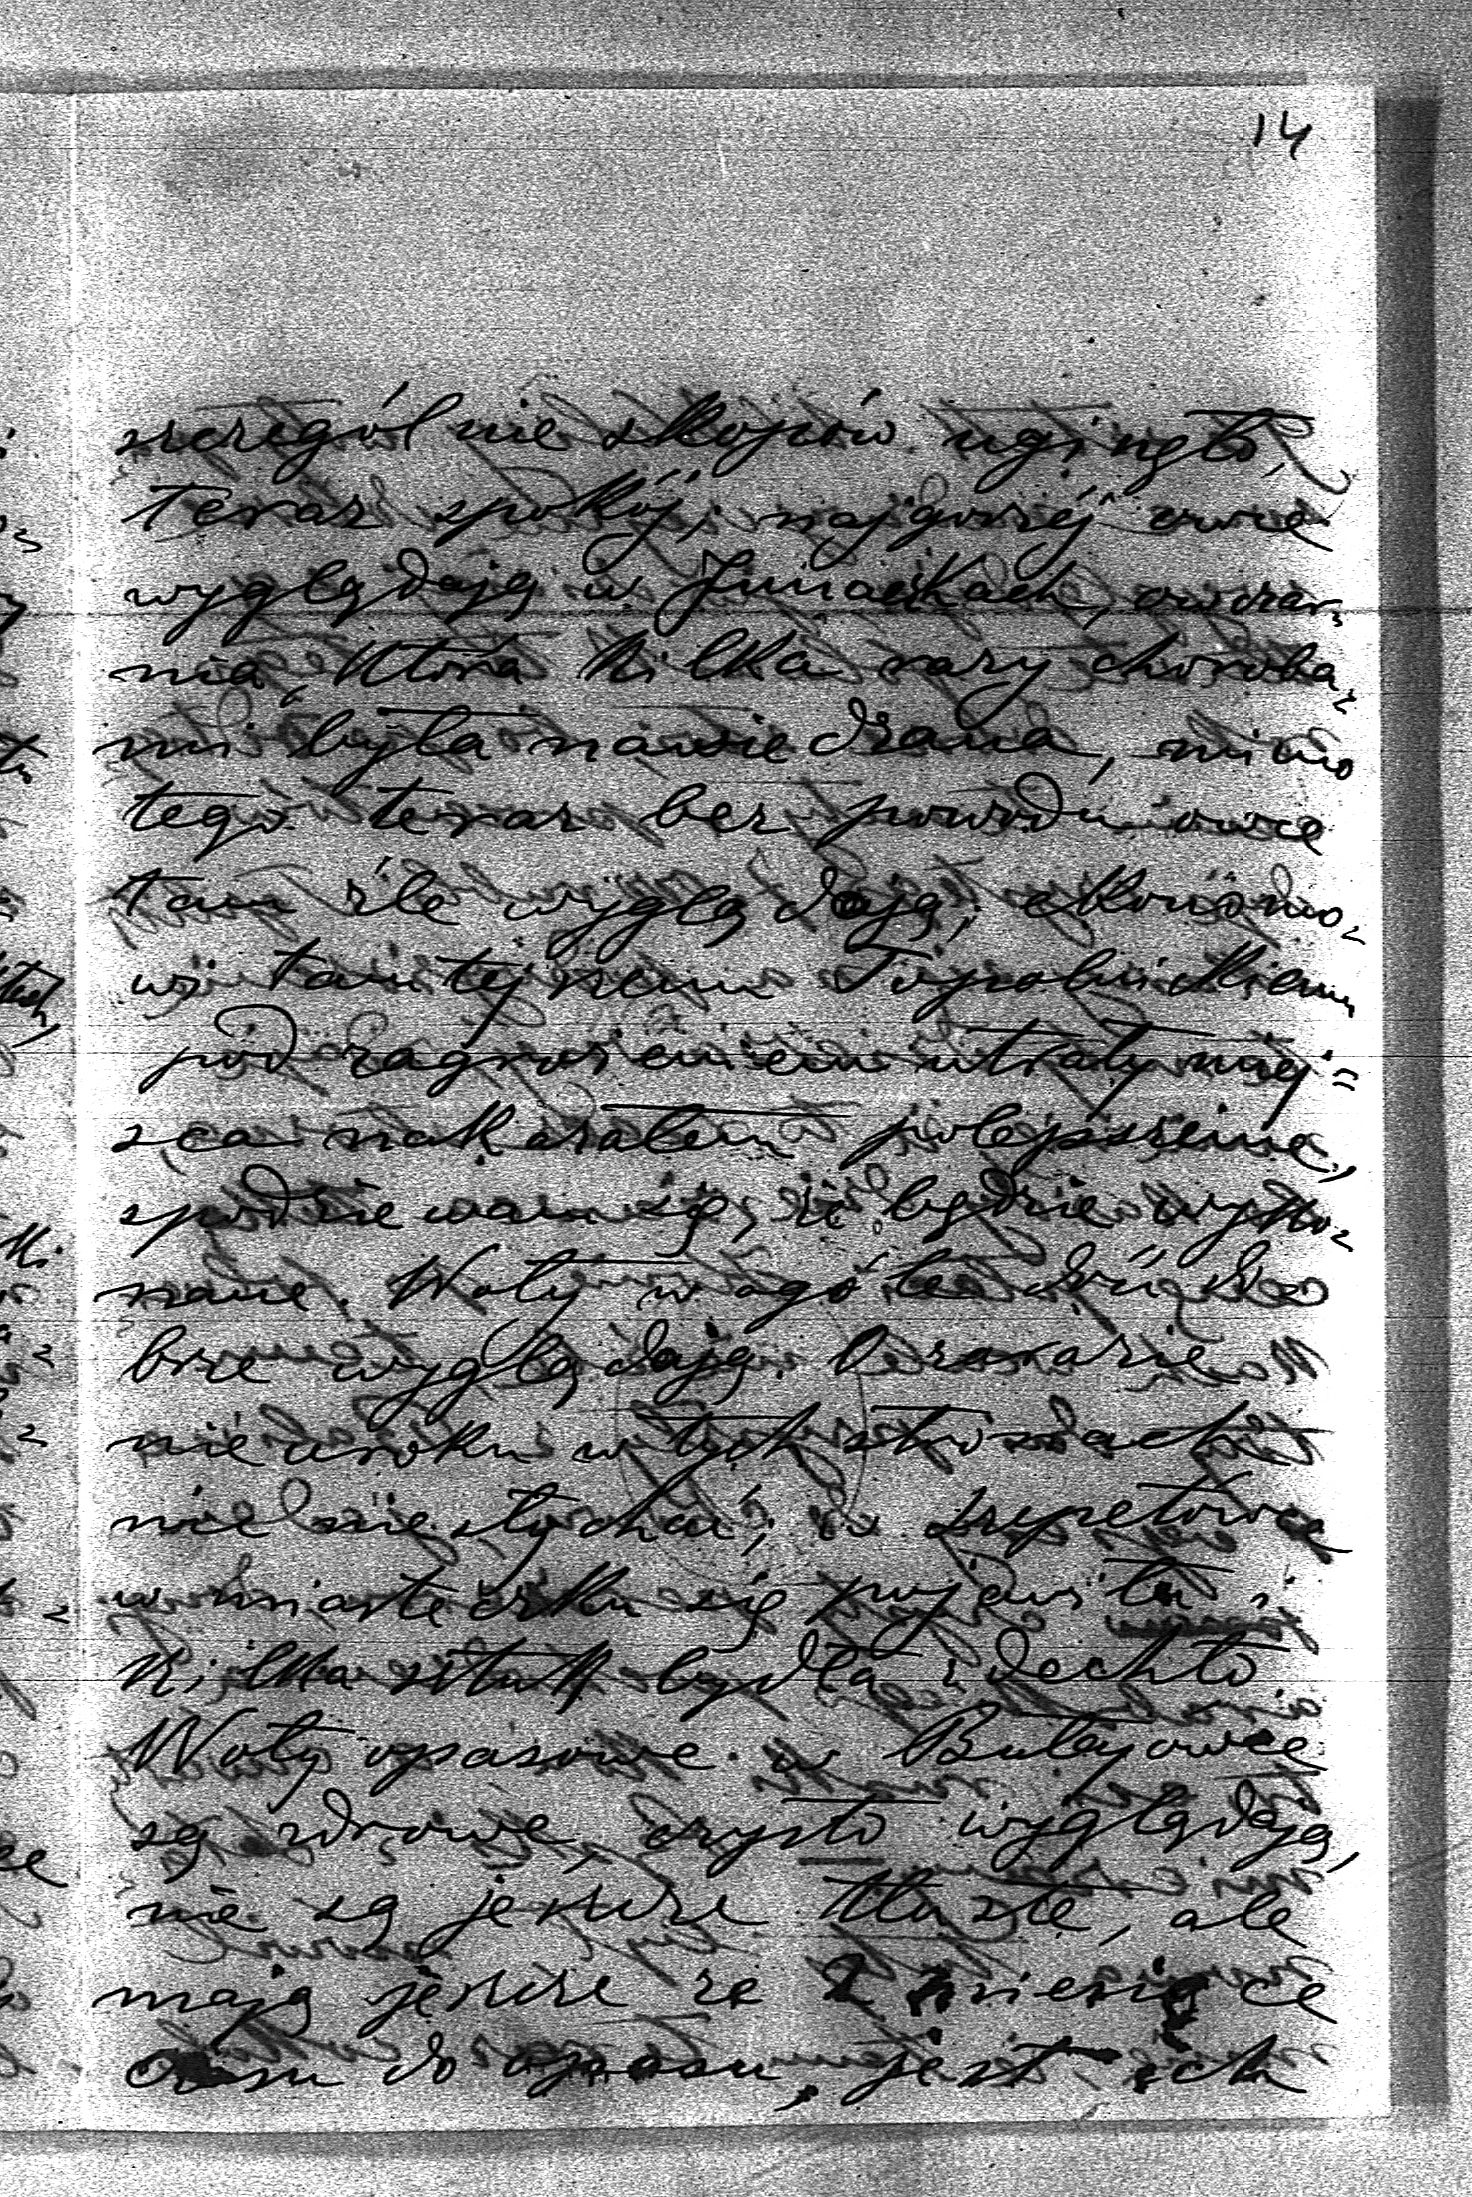 14
szczegól nie skopów zginęło,
teraz spokój; najgorzéj owce
wyglądają w Junaczkach, owczar¬
nia, która kilka razy choroba¬
mi była nawiedzana, mimo
tego teraz bez powodu owce
tam źle wyglądają; ekonomo¬
wi tamtejszemu Topolnickiemu
pod zagrożeniem utraty miej=
sca nakazałem polepszenie,
spodziewam się, iż będzie wyko¬
nane. Woły w ogóle dziś do
brze wyglądają. O zarazie
nie uroku w tych stronach
nic nie słychać; w Szepetówce
w miasteczku się pojawiła i
kilka sztuk bydła zdechło
Woły opasowe w Butejowce
są zdrowe, czysto wyglądają,
nie są jeszcze tłuste, ale
mają jeszcze ze 2 miesiące
czasu do opasu, jest ich